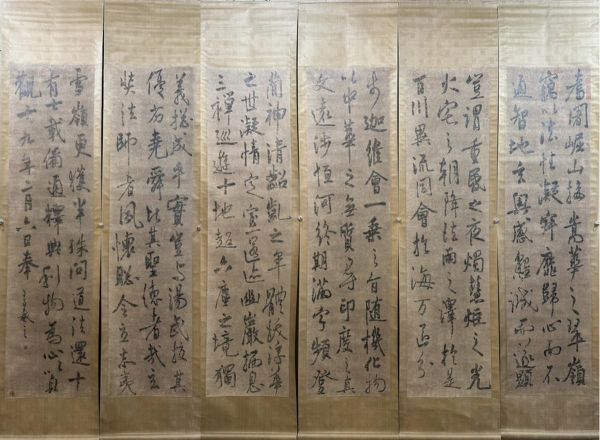 耆闍崛山接嵩華之翠嶺
竊以法性凝寂靡歸心而不
通智地玄奧感懇誠而遂顯
豈謂重昏之夜燭慧炬之光
火宅之朝降法雨之澤於是
百川異流同會於海万區分
步迦維會一乘之旨随機化物
以中華之無質尋印度之真
文遠涉恒河終期滿字頻登
簡神清齠齔之年體拔浮華
之世凝情定室匿迹幽巖栖息
三禪巡遊十地超六塵之境獨
義揔成乎實豈与湯武挍其
優劣堯舜比其聖德者哉玄
奘法師者夙懷聡令立志夷
雪嶺更獲半珠問道法還十
有七載備通釋典利物為心以貞
觀十九年二月六日奉